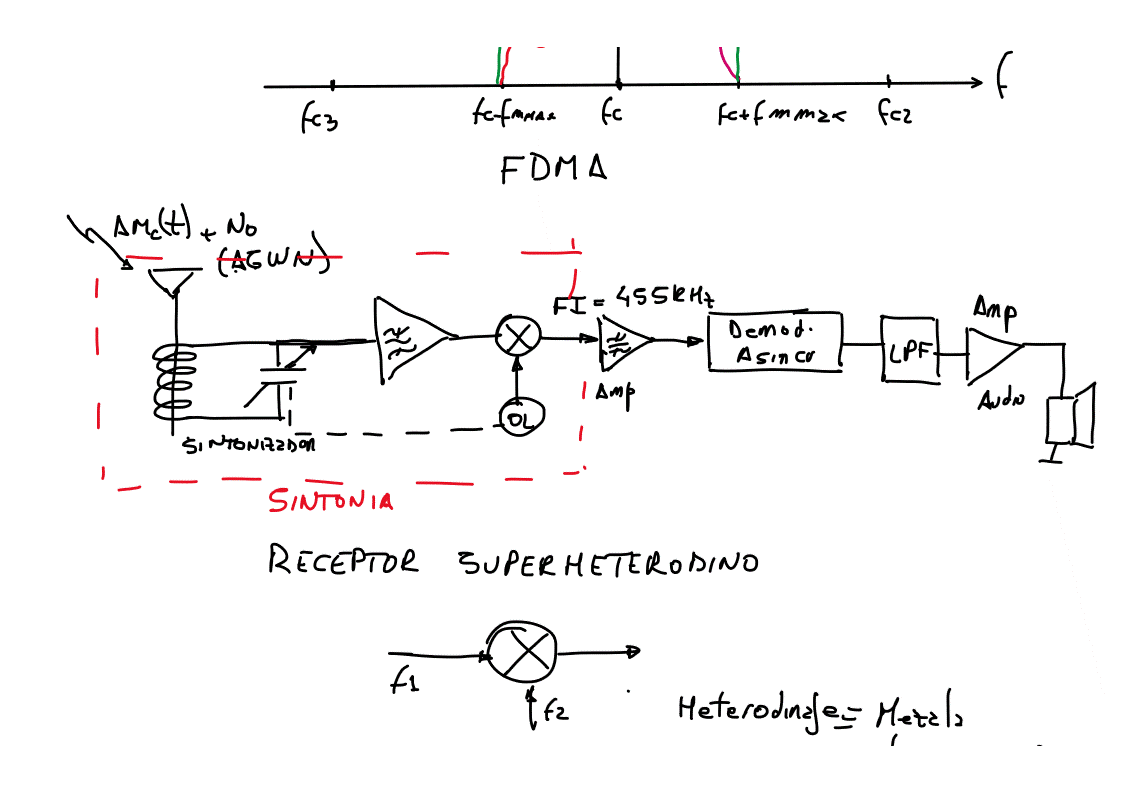 f
fc3 fc-fmmax fc fc+fmmax fc2
FDMA
AMc(t) + No
(AGWN)
FI = 455kHz
Demod.
Asincr
LPF
Amp
Audio
Amp
OL
SINTONIZADOR
SINTONIA
RECEPTOR SUPERHETERODINO
f1
f2
Heterodinaje = Mezcla